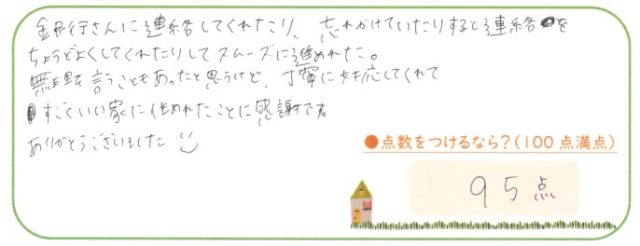 銀行さんに連絡してくれたり、忘れかけていたりすると連絡を
ちょうどよくしてくれたりしてスムーズに進めれた。
無理難言うこともあったと思うけど、丁寧に対応してくれて
すごくいい家に住めれたことに感謝です
ありがとうございました
●点数をつけるなら？(100点満点)
95点